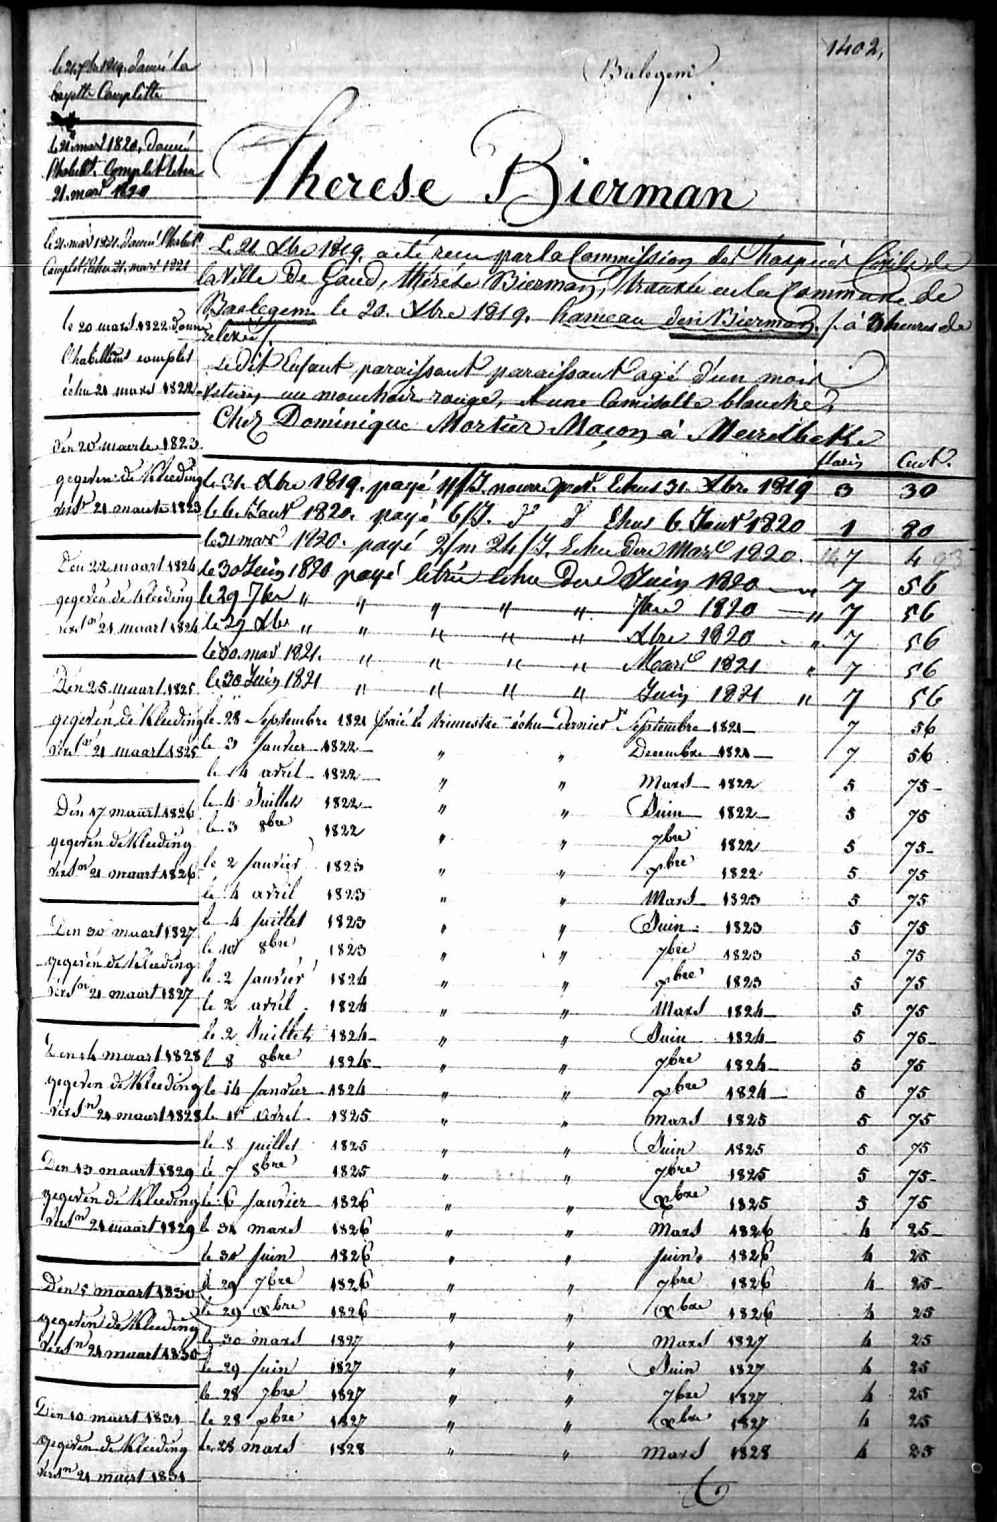 1402,
Balegem
le 21 Xbre 1819. donné la
Layette Complette
le 21 mars 1820, donné
l'habillt. Complet échu
21. mars 1820
le 21 mars 1821. donné l'habilt
Complet échu 21. mars 1821
le 20 mars 1822 donné
l'habillemt complet
échu 21 mars 1822
den 20 maarte 1823
gegeven de Kleeding
verstn 21 maarte 1823
Den 22 maart 1824
gegeven de Kleeding
verstn 21 maart 1824
Den 25 maart 1825
gegeven de Kleeding
verstn 21 maart 1825
Den 17 maart 1826
gegeven de Kleeding
verstn 21 maart 1826
Den 30 maart 1827
gegeven de Kleeding
verstn 21 maart 1827
Den 14 maart 1828
gegeven de Kleeding
verstn 21 maart 1828
Den 13 maart 1829
gegeven de Kleeding
verstn 21 maart 1829
Den 5 maart 1830
gegeven de Kleeding
verstn 21 maart 1830
Den 10 maert 1831
gegeven de Kleeding
verstn 21 maert 1831
Therese Bierman
Le 21 Xbre 1819. a été recu par la Commission des hospices Civils de
la Ville De Gand, thérése Bierman, trouvée en la Commune de
Baelegem le 20. Xbre 1819. hameau den Bierman, à 8 heures de
relevée
Le dit Enfant paraissant paraissant agé d'un mois
vetu, un mouchoir rouge, & une Camisolle blanche,
Chez Dominique Mortier Maçon à Meirelbeke
florin Cent.
le 31 Xbre 1819. payé 11/J. nourre prov. Echus 31. Xbre 1819 3 30
le 6 Janr 1820. payé 6/J. do d Echus 6 Janr 1820 1 80
le 31 mars 1820. payé 2/m 24/J. Echu Dere Mars 1820. 7 4
le 30 Juin 1820 payé le trée echu Dere Juin 1820 " 7 56
le 29 7bre " " " " " 7bre 1820 " 7 56
le 29 Xbre " " " " " Xbre 1820 " 7 56
le 30 mars 1821. " " " " Mars 1821 " 7 56
le 30 Juin 1821 " " " " Juin 1821 " 7 56
le 28 Septembre 1821 paié le trimestre échu dernier Septembre 1821 7 56
le 3 Janvier 1822 " " Decembre 1821 7 56
le 14 avril 1822 " " Mars 1822 5 75
le 4 Juillet 1822 " " Juin 1822 5 75
le 3 8bre 1822 " " 7bre 1822 5 75
le 2 Janvier 1823 " " Xbre 1822 5 75
le 4 avril 1823 " " Mars 1823 5 75
le 4 juillet 1823 " " Juin 1823 5 75
le 10 8bre 1823 " " 7bre 1823 5 75
le 2 janvier 1824 " " Xbre 1823 5 75
le 2 avril 1824 " " Mars 1824 5 75
le 2 Juillet 1824 " " Juin 1824 5 75
le 8 8bre 1824 " " 7bre 1824 5 75
le 14 Janvier 1824 " " Xbre 1824 5 75
le 1r Avril 1825 " " Mars 1825 5 75
le 8 juillet 1825 " " Juin 1825 5 75
le 7 8bre 1825 " " 7bre 1825 5 75
le 6 Janvier 1826 " " Xbre 1825 5 75
le 31 mars 1826 " " Mars 1826 4 25
le 30 Juin 1826 " " Juin 1826 4 25
le 29 7bre 1826 " " 7bre 1826 4 25
le 29 Xbre 1826 " " Xbre 1826 4 25
le 30 mars 1827 " " Mars 1827 4 25
le 29 Juin 1827 " " Juin 1827 4 25
le 28 7bre 1827 " " 7bre 1827 4 25
le 28 Xbre 1827 " " Xbre 1827 4 25
le 28 mars 1828 " " Mars 1828 4 25